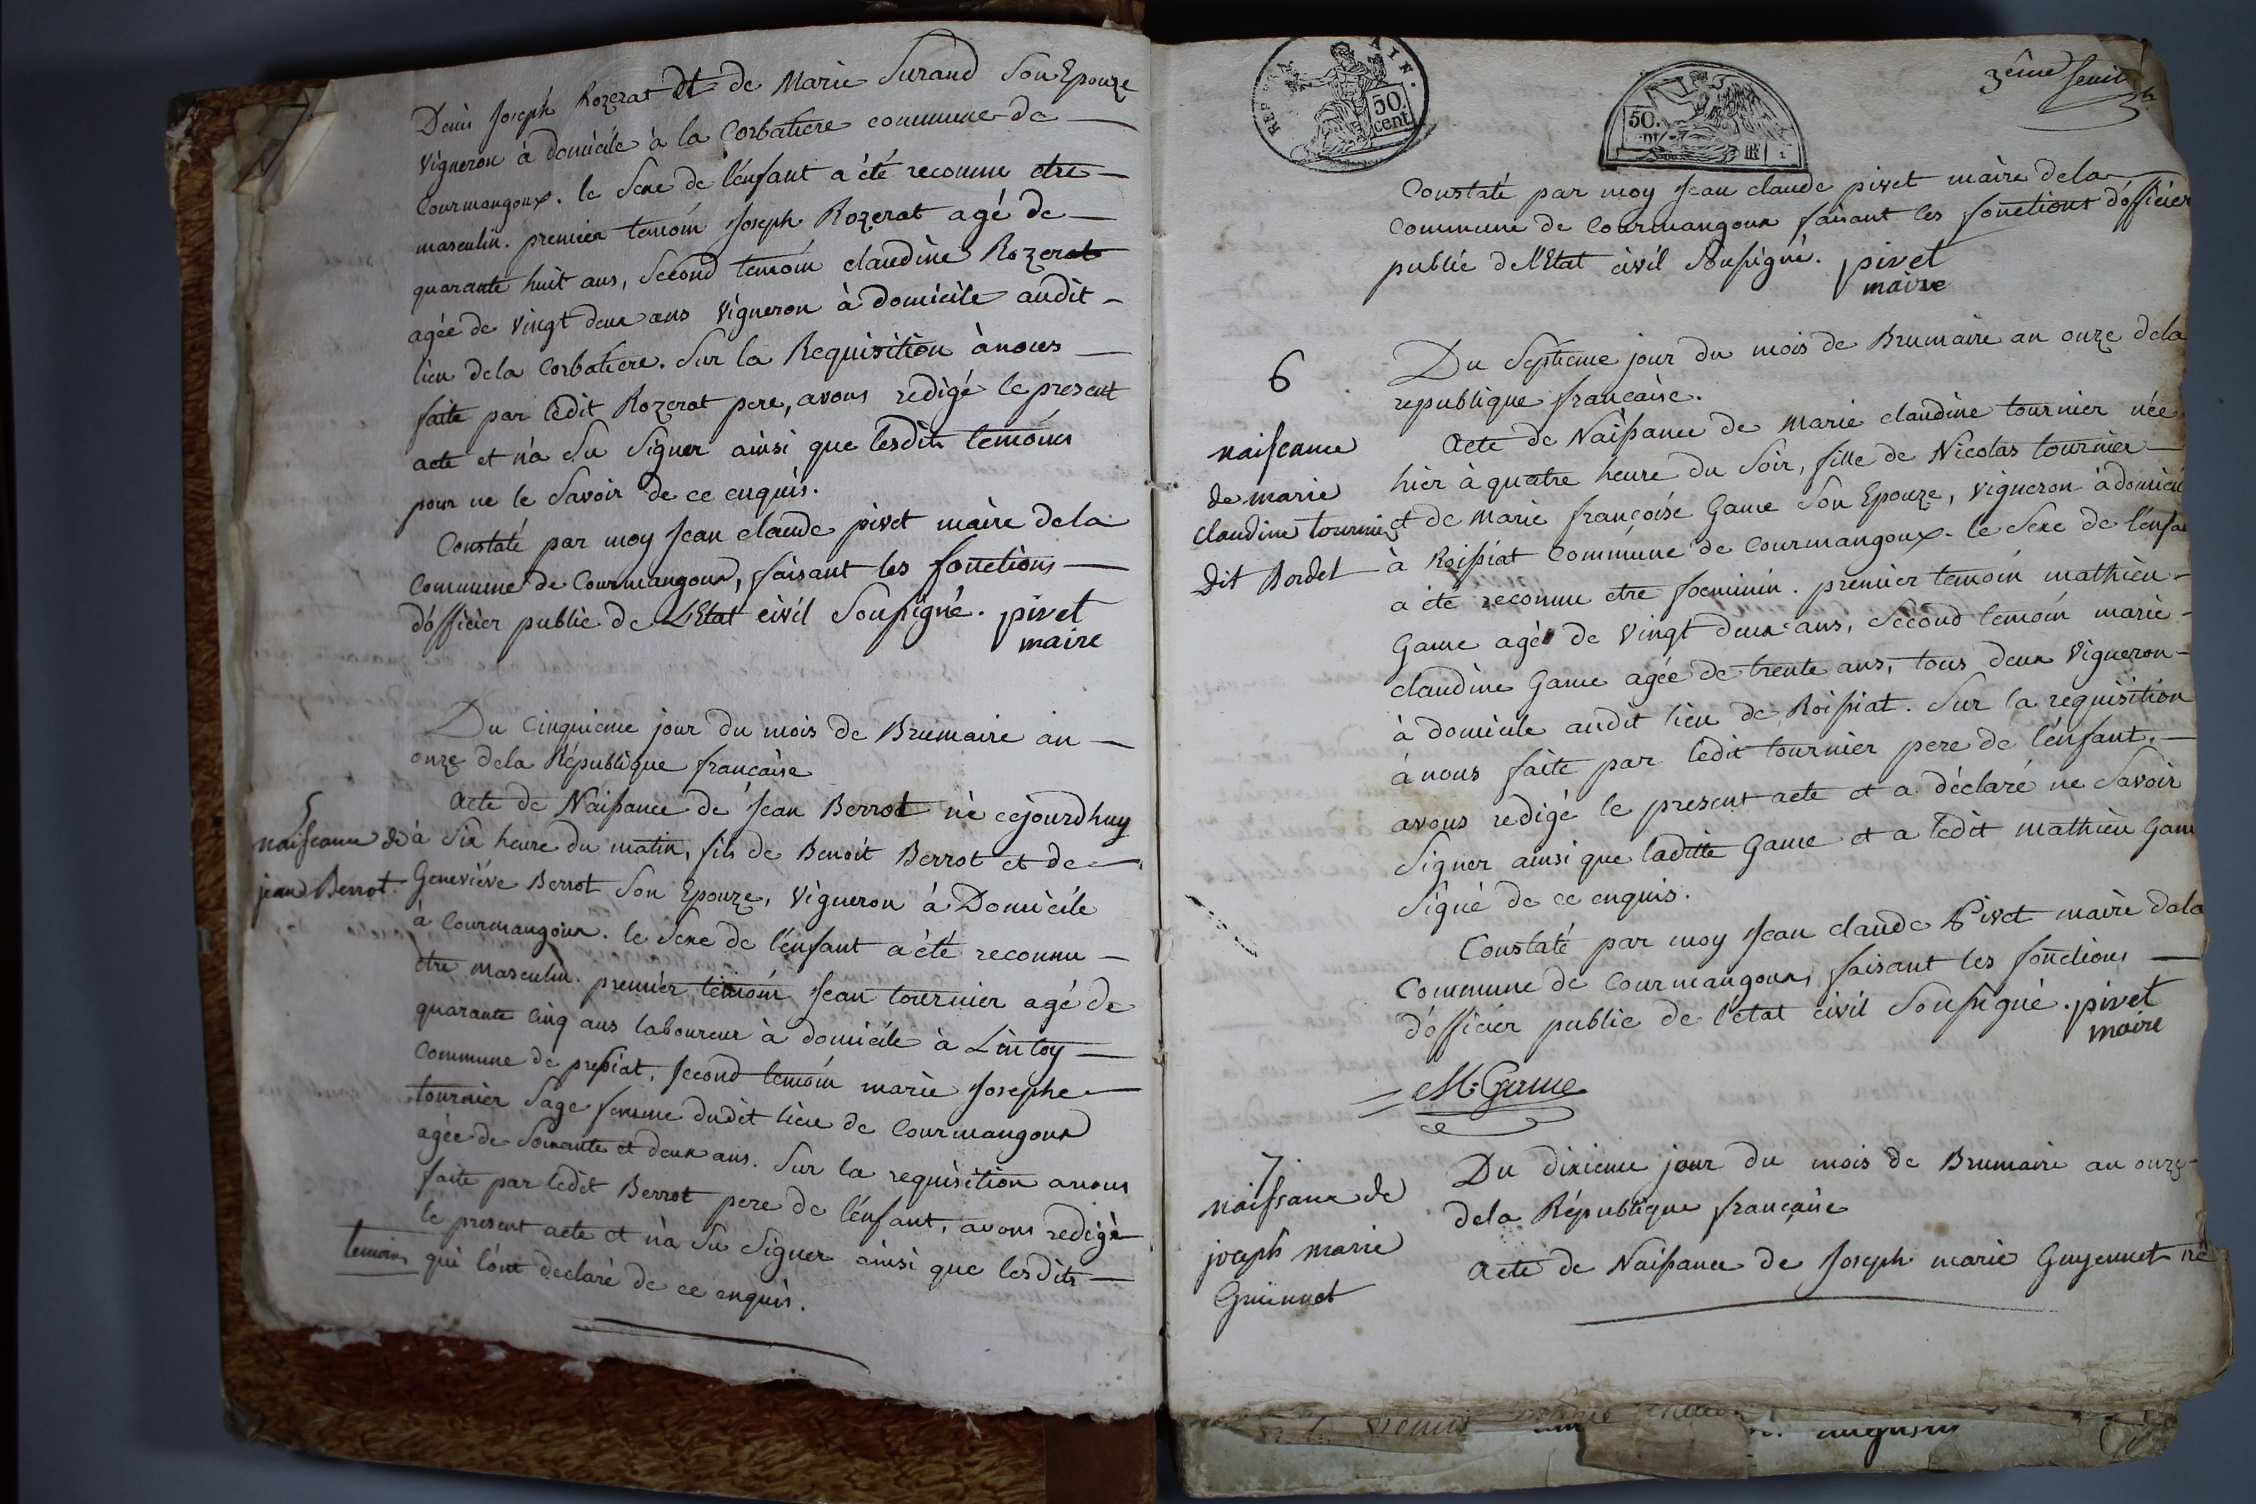 Denis Joseph Rozerat et de Marie Suraud Son Epouze
vigneron à domicile à la Corbatiere commune de
Courmangoux. le Sexe de l'enfant a été reconnu etre
masculin. premier temoin Joseph Rozerat agé de
quarante huit ans, Second temoin claudine Rozerat
agée de vingt deux ans vigneron à domicile audit
lieu dela Corbatiere. Sur la Requisition à nous
faite par ledit Rozerat pere, avons redigé le present
acte et n'a Su Signer ainsi que lesdits temoins
pour ne le Savoir de ce enquis.
Constaté par moy Jean claude pivet maire dela
Commune de Courmangoux, faisant les fonctions
d'officier public de L'Etat civil Soussigné. pivet
maire
Du Cinquieme jour du mois de Brumaire an
onze dela République francaise
5
Acte de Naissance de Jean Berrot né cejourdhuy
naissance de
jean Berrot
à Six heure du matin, fils de Benoit Berrot et de
Geneviéve Berrot Son Epouze, vigneron à Domicile
à Courmangoux. le Sexe de l'enfant a été reconnu
etre masculin. premier temoin Jean tournier agé de
quarante cinq ans laboureur à domicile à Lintoy
Commune de pressiat, Second temoin marie Josephe
tournier Sage femme dudit lieu de Courmangoux
agée de Soixante et deux ans. Sur la requisition a nous
faite par ledit Berrot pere de l'enfant, avons redigé
le present acte et n'a Su Signer ainsi que lesdits
temoins qui l'ont declaré de ce enquis.
REP. FRA AIN.
50 cent
50.
RF
3ême feuil
Constaté par moy Jean claude pivet maire dela
Commune de Courmangoux faisant les fonctions d'officier
public de l'Etat civil Soussigné. pivet
maire
6
Du Septieme jour du mois de Brumaire an onze dela
republique francaise.
naissance
de marie
claudine tournier
dit Bordel
Acte de Naissance de Marie claudine tournier née
hier à quatre heure du Soir, fille de Nicolas tournier
et de Marie françoise Game Son Epouze, vigneron à domicil
à Roissiat Commune de Courmangoux. le Sexe de l'enfa
a été reconnu etre foeminin. premier temoin mathieu
Game agé de vingt deux ans, Second temoin marie
claudine Game agée de trente ans, tous deux vigneron
à domicile audit lieu de Roissiat. Sur la requisition
à nous faite par ledit tournier pere de l'enfant,
avons redigé le present acte et a déclaré ne Savoir
Signer ainsi que laditte Game et a ledit mathieu Gam
Signé de ce enquis.
Constaté par moy Jean claude Pivet maire dela
Commune de Courmangoux, faisant les fonctions
d'officier public de l'état civil Soussigné. pivet
maire
M. Game
7
naissance de
joseph marie
Guiennet
Du dixieme jour du mois de Brumaire an onze
dela République francaise
Acte de Naissance de Joseph marie Guyennet né